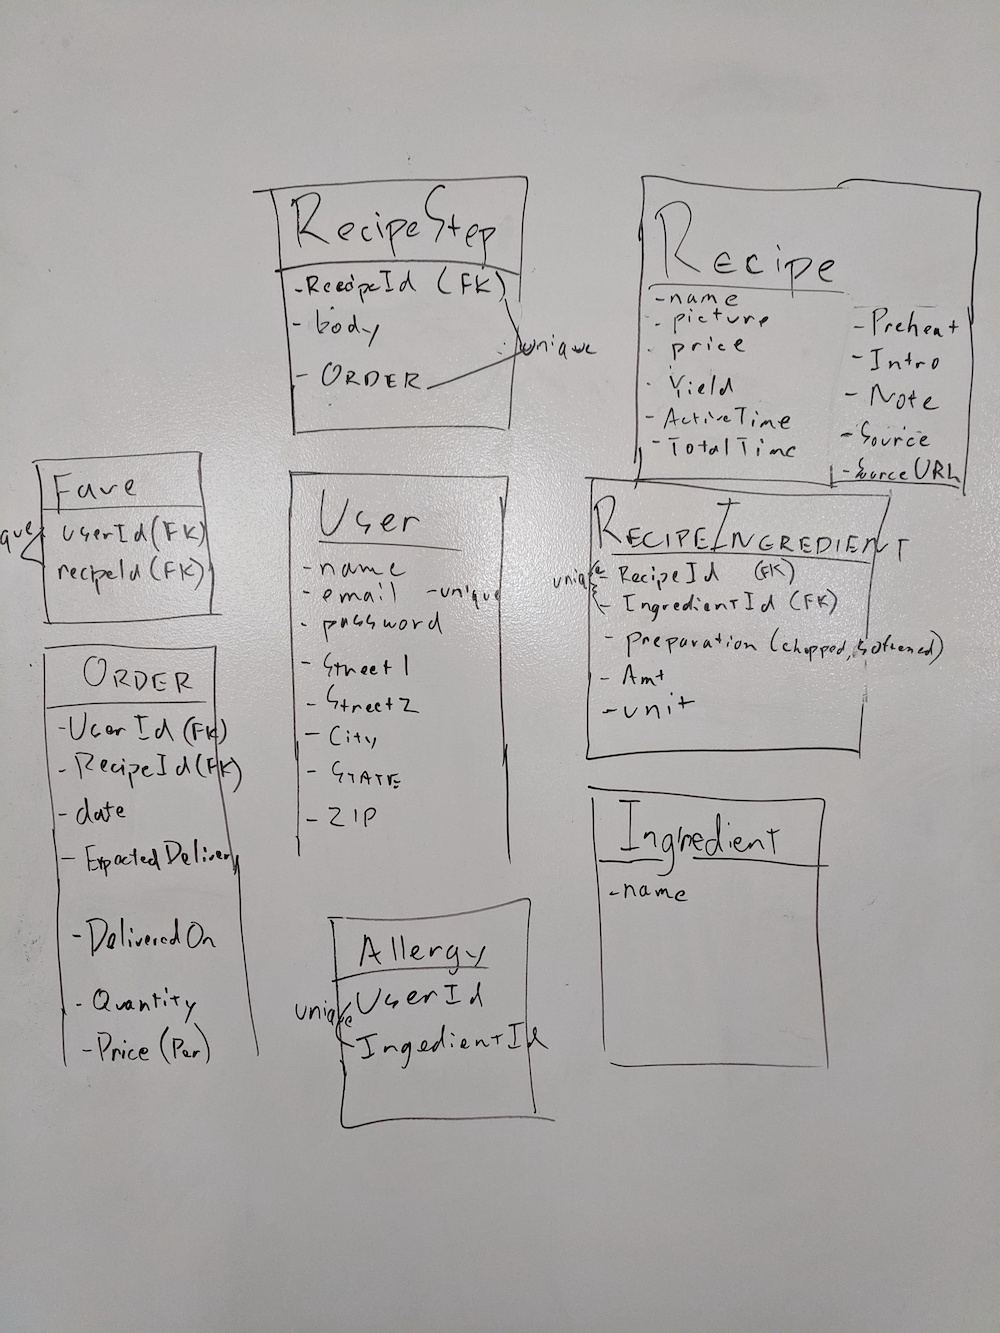 RecipeStep
- RecipeId (FK)
- body
- ORDER
unique
Recipe
- name
- picture
- price
- Yield
- ActiveTime
- TotalTime
- Preheat
- Intro
- Note
- Source
- SourceURL
Fave
userId (FK)
recipeId (FK)
que
User
- name
- email - unique
- password
- Street1
- Street2
- City
- STATE
- ZIP
RECIPEINGREDIENT
unique
- RecipeId (FK)
- IngredientId (FK)
- preparation (chopped, softened)
- Amt
- unit
ORDER
- UserId (FK)
- RecipeId (FK)
- date
- ExpectedDelivery
- DeliveredOn
- Quantity
- Price (Per)
Allergy
unique
UserId
IngedientId
Ingredient
- name